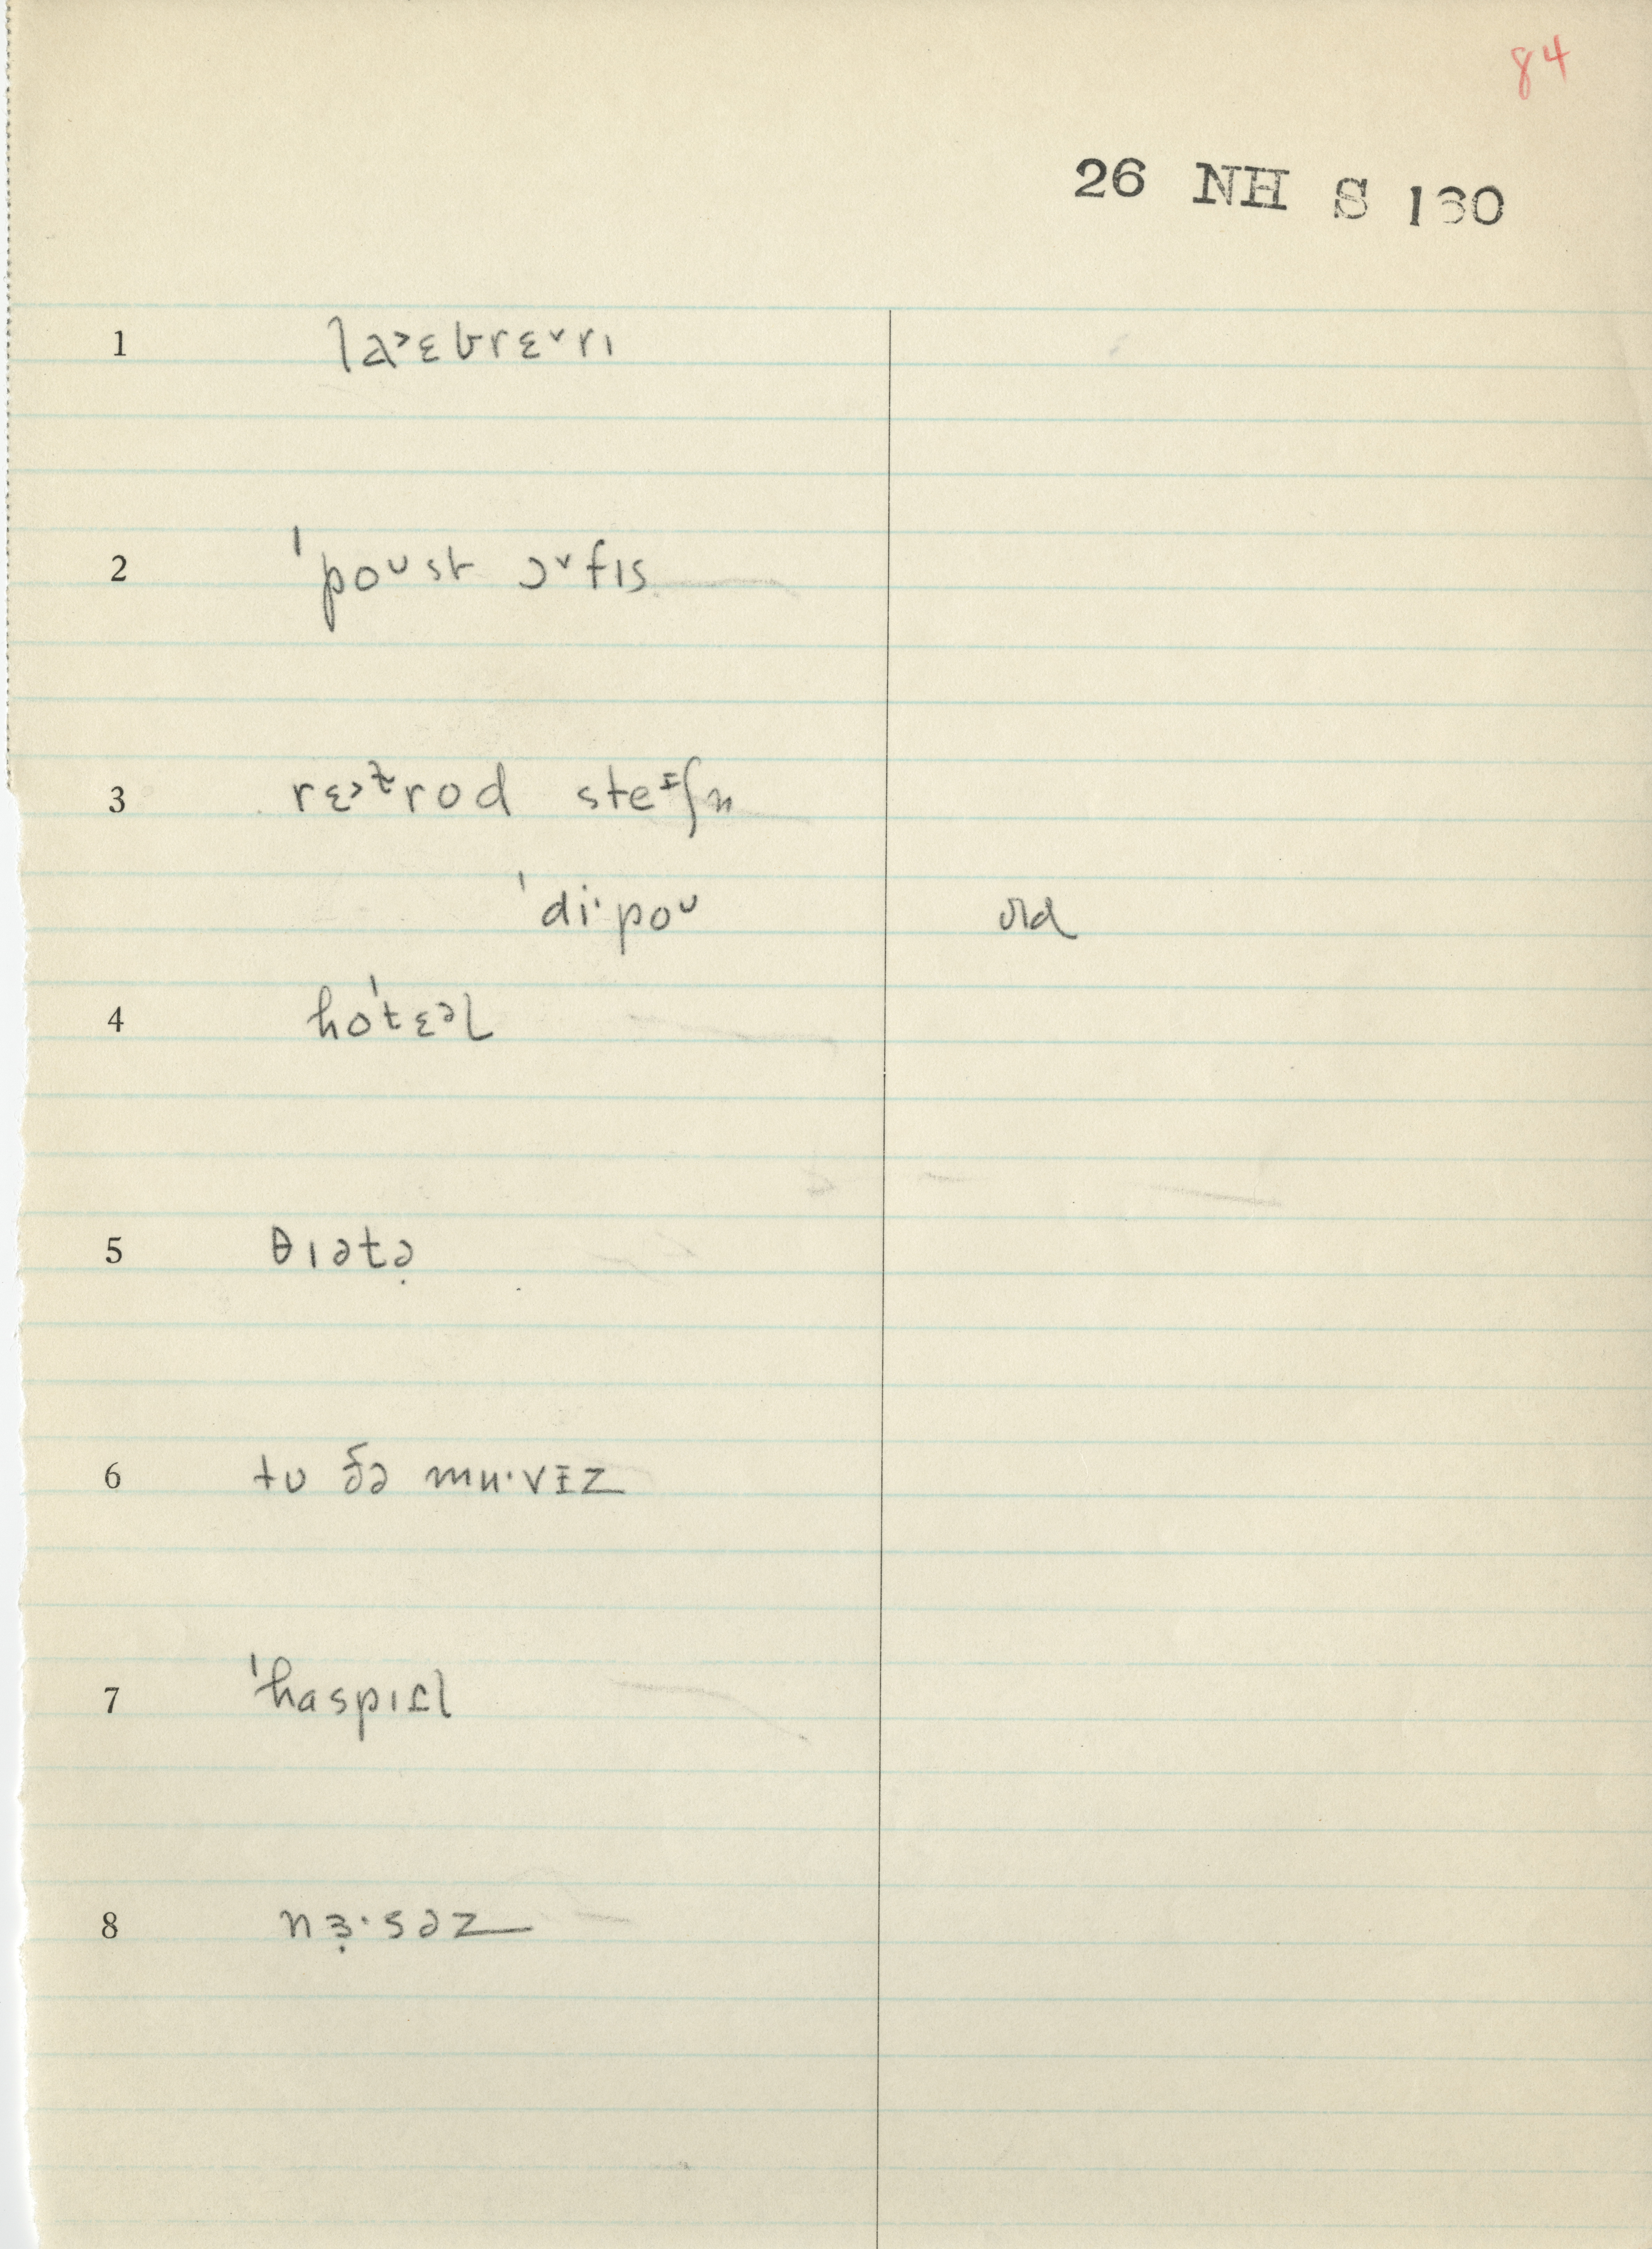 84
26 NH S 130
1 la˃ɛbrɛ˅rɪ
2 ˈpoᶷst ɔ˅fɪs
3 rɛ˃ᵗ̬rod steᶦʃn
ˈdi·poᶷ old
4 hoˈtɛᵊl
5 θɪətə̣
6 tʊ ðə mu·vɪz
7 ˈhaspɪɾl
8 nɜ̣·səz